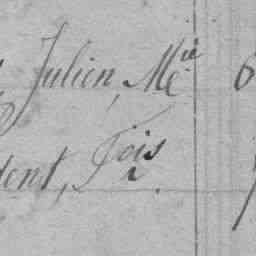 Julien, Mie 6
dent, Fois